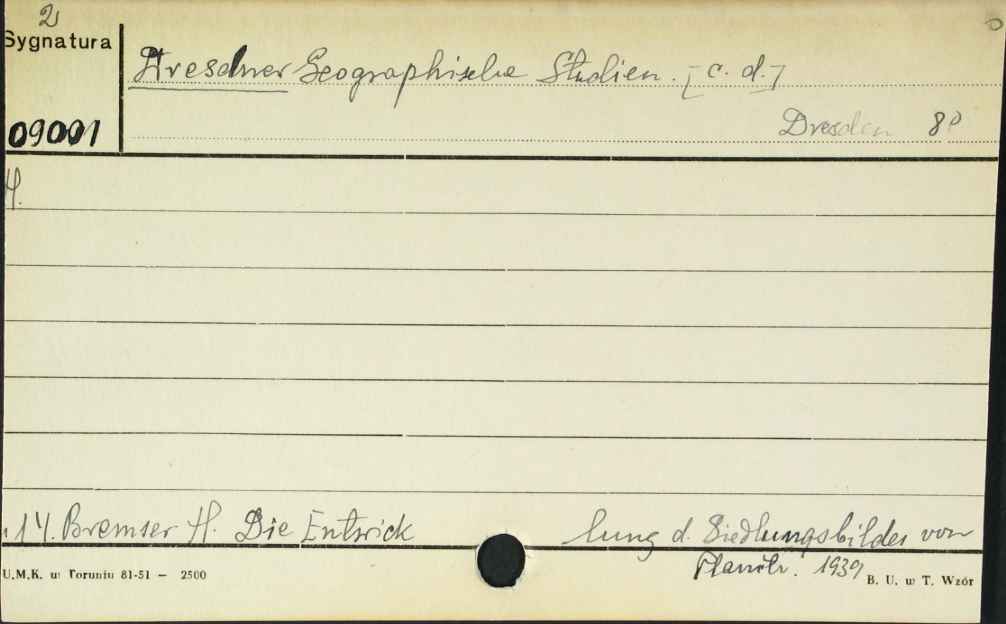 2
Sygnatura
Dresdner Geographische Studien. [c. d.]
09001
Dresden 8°
H.
14. Bremser H. Die Entwick lung d. Siedlungsbildes von
1939
U.M.K. w Toruniu 81-51 — 2500
B. U. w T. Wzór